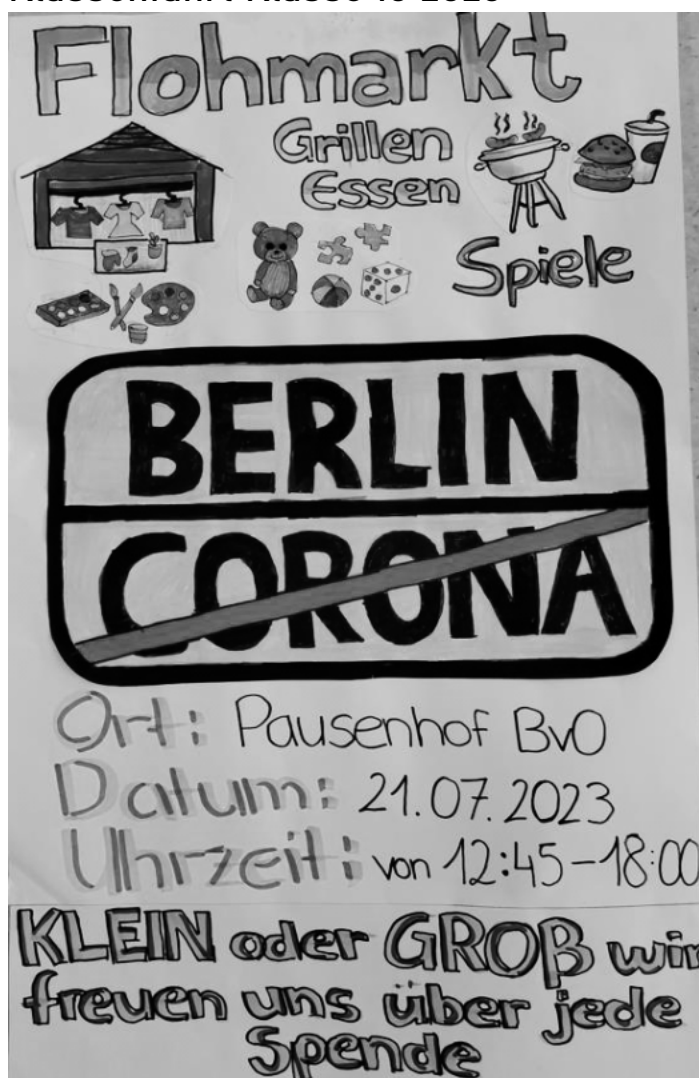 Flohmarkt
Grillen
Essen
Spiele
BERLIN
CORONA
Ort: Pausenhof BvO
Datum: 21.07.2023
Uhrzeit: von 12:45-18:00
KLEIN oder GROß wir
freuen uns über jede
Spende